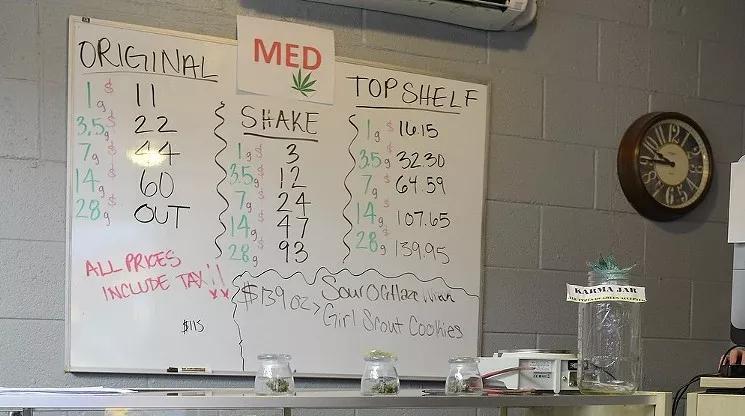 MED
ORIGINAL
1g $ 11
3.5g $ 22
7g $ 44
14g $ 60
28g $ OUT
ALL PRICES
INCLUDE TAX!!
$115
SHAKE
1g $ 3
3.5g $ 12
7g $ 24
14g $ 47
28g $ 93
TOP SHELF
1g $ 16.15
3.5g $ 32.30
7g $ 64.59
14g $ 107.65
28g $ 139.95
$139 oz > Sour OG
Girl Scout Cookies
KARMA JAR